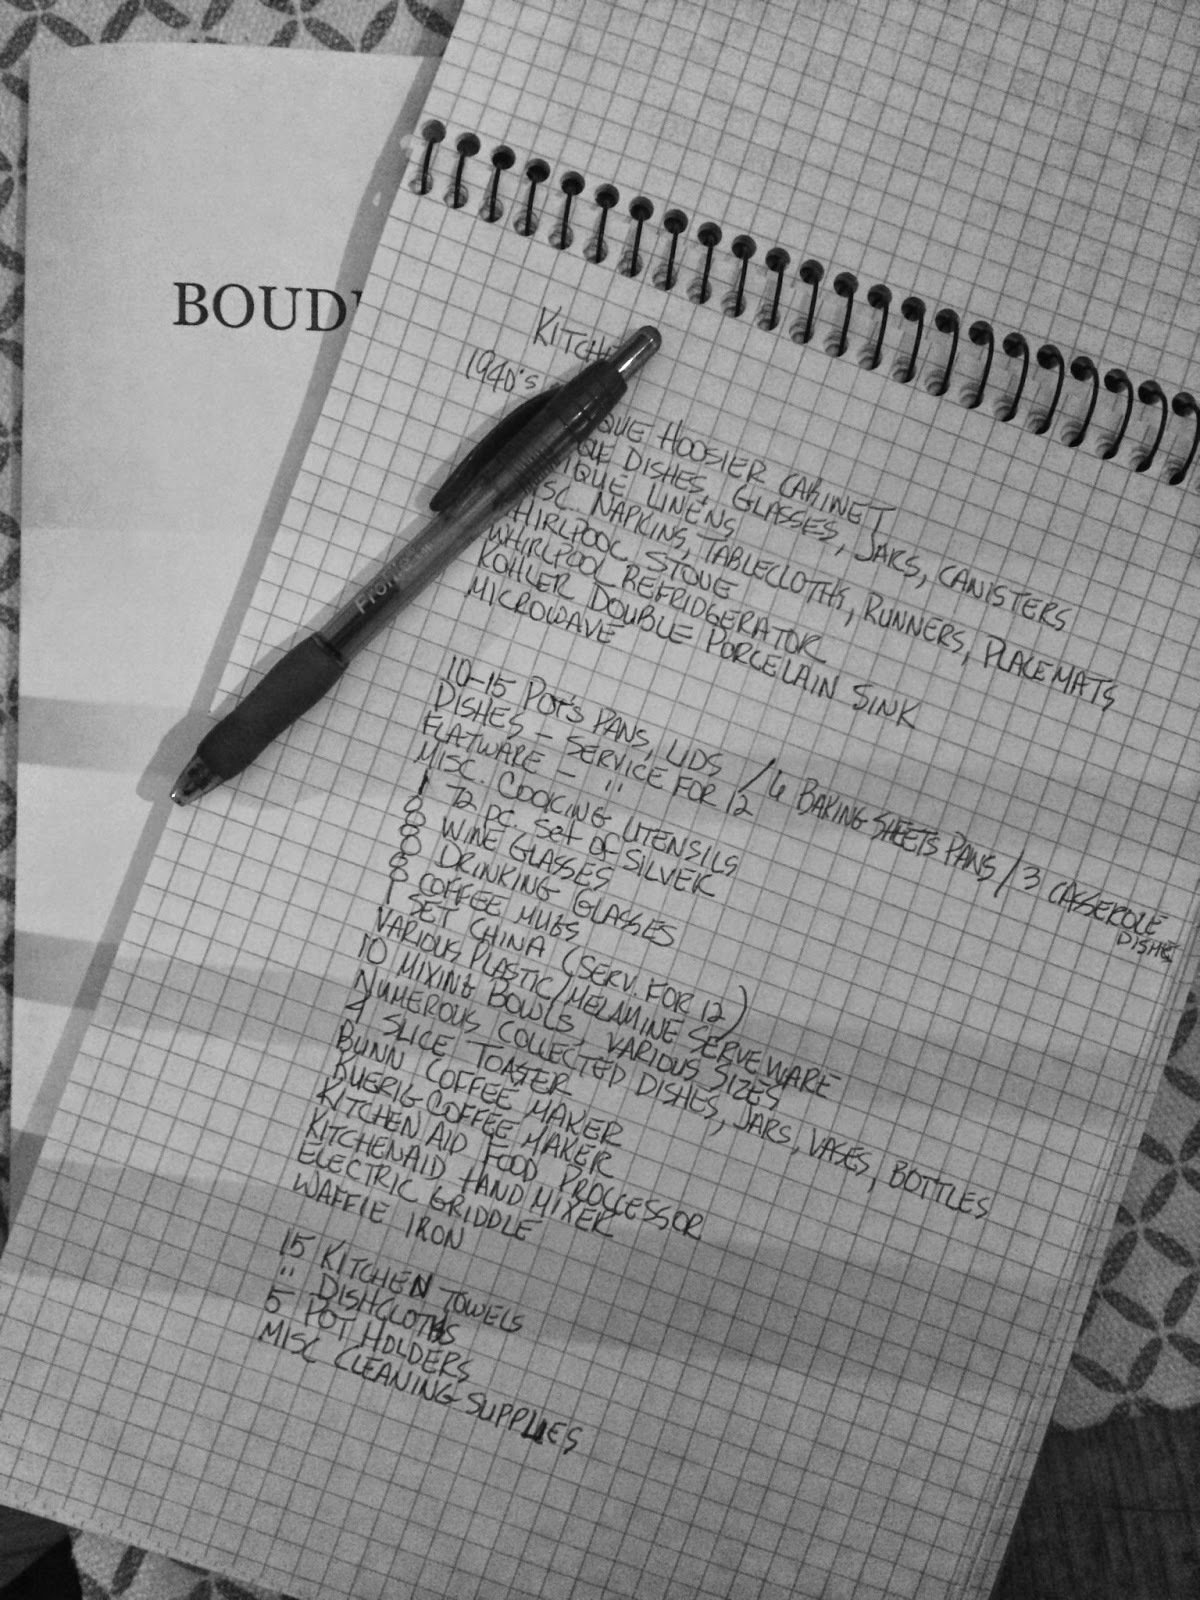 BOUD
KITCH
1940's
QUE HOOSIER CABINET
QUE DISHES, GLASSES, JARS, CANISTERS
IQUE LINENS
SC. NAPKINS, TABLECLOTHS, RUNNERS, PLACEMATS
WHIRLPOOL STOVE
WHIRLPOOL REFRIDGERATOR
KOHLER DOUBLE PORCELAIN SINK
MICROWAVE
10-15 POT'S PANS, LIDS / 6 BAKING SHEETS PANS / 3 CASSEROLE DISHES
DISHES - SERVICE FOR 12
FLATWARE - "
MISC. COOKING UTENSILS
1 72 PC. SET OF SILVER
8 WINE GLASSES
8 DRINKING GLASSES
8 COFFEE MUGS
1 SET CHINA (SERV. FOR 12)
VARIOUS PLASTIC/MELAMINE SERVEWARE
10 MIXING BOWLS, VARIOUS SIZES
NUMEROUS COLLECTED DISHES, JARS, VASES, BOTTLES
4 SLICE TOASTER
BUNN COFFEE MAKER
KUERIG COFFEE MAKER
KITCHEN AID FOOD PROCCESSOR
KITCHENAID HAND MIXER
ELECTRIC GRIDDLE
WAFFLE IRON
15 KITCHEN TOWELS
" DISHCLOTHS
5 POT HOLDERS
MISC CLEANING SUPPLIES